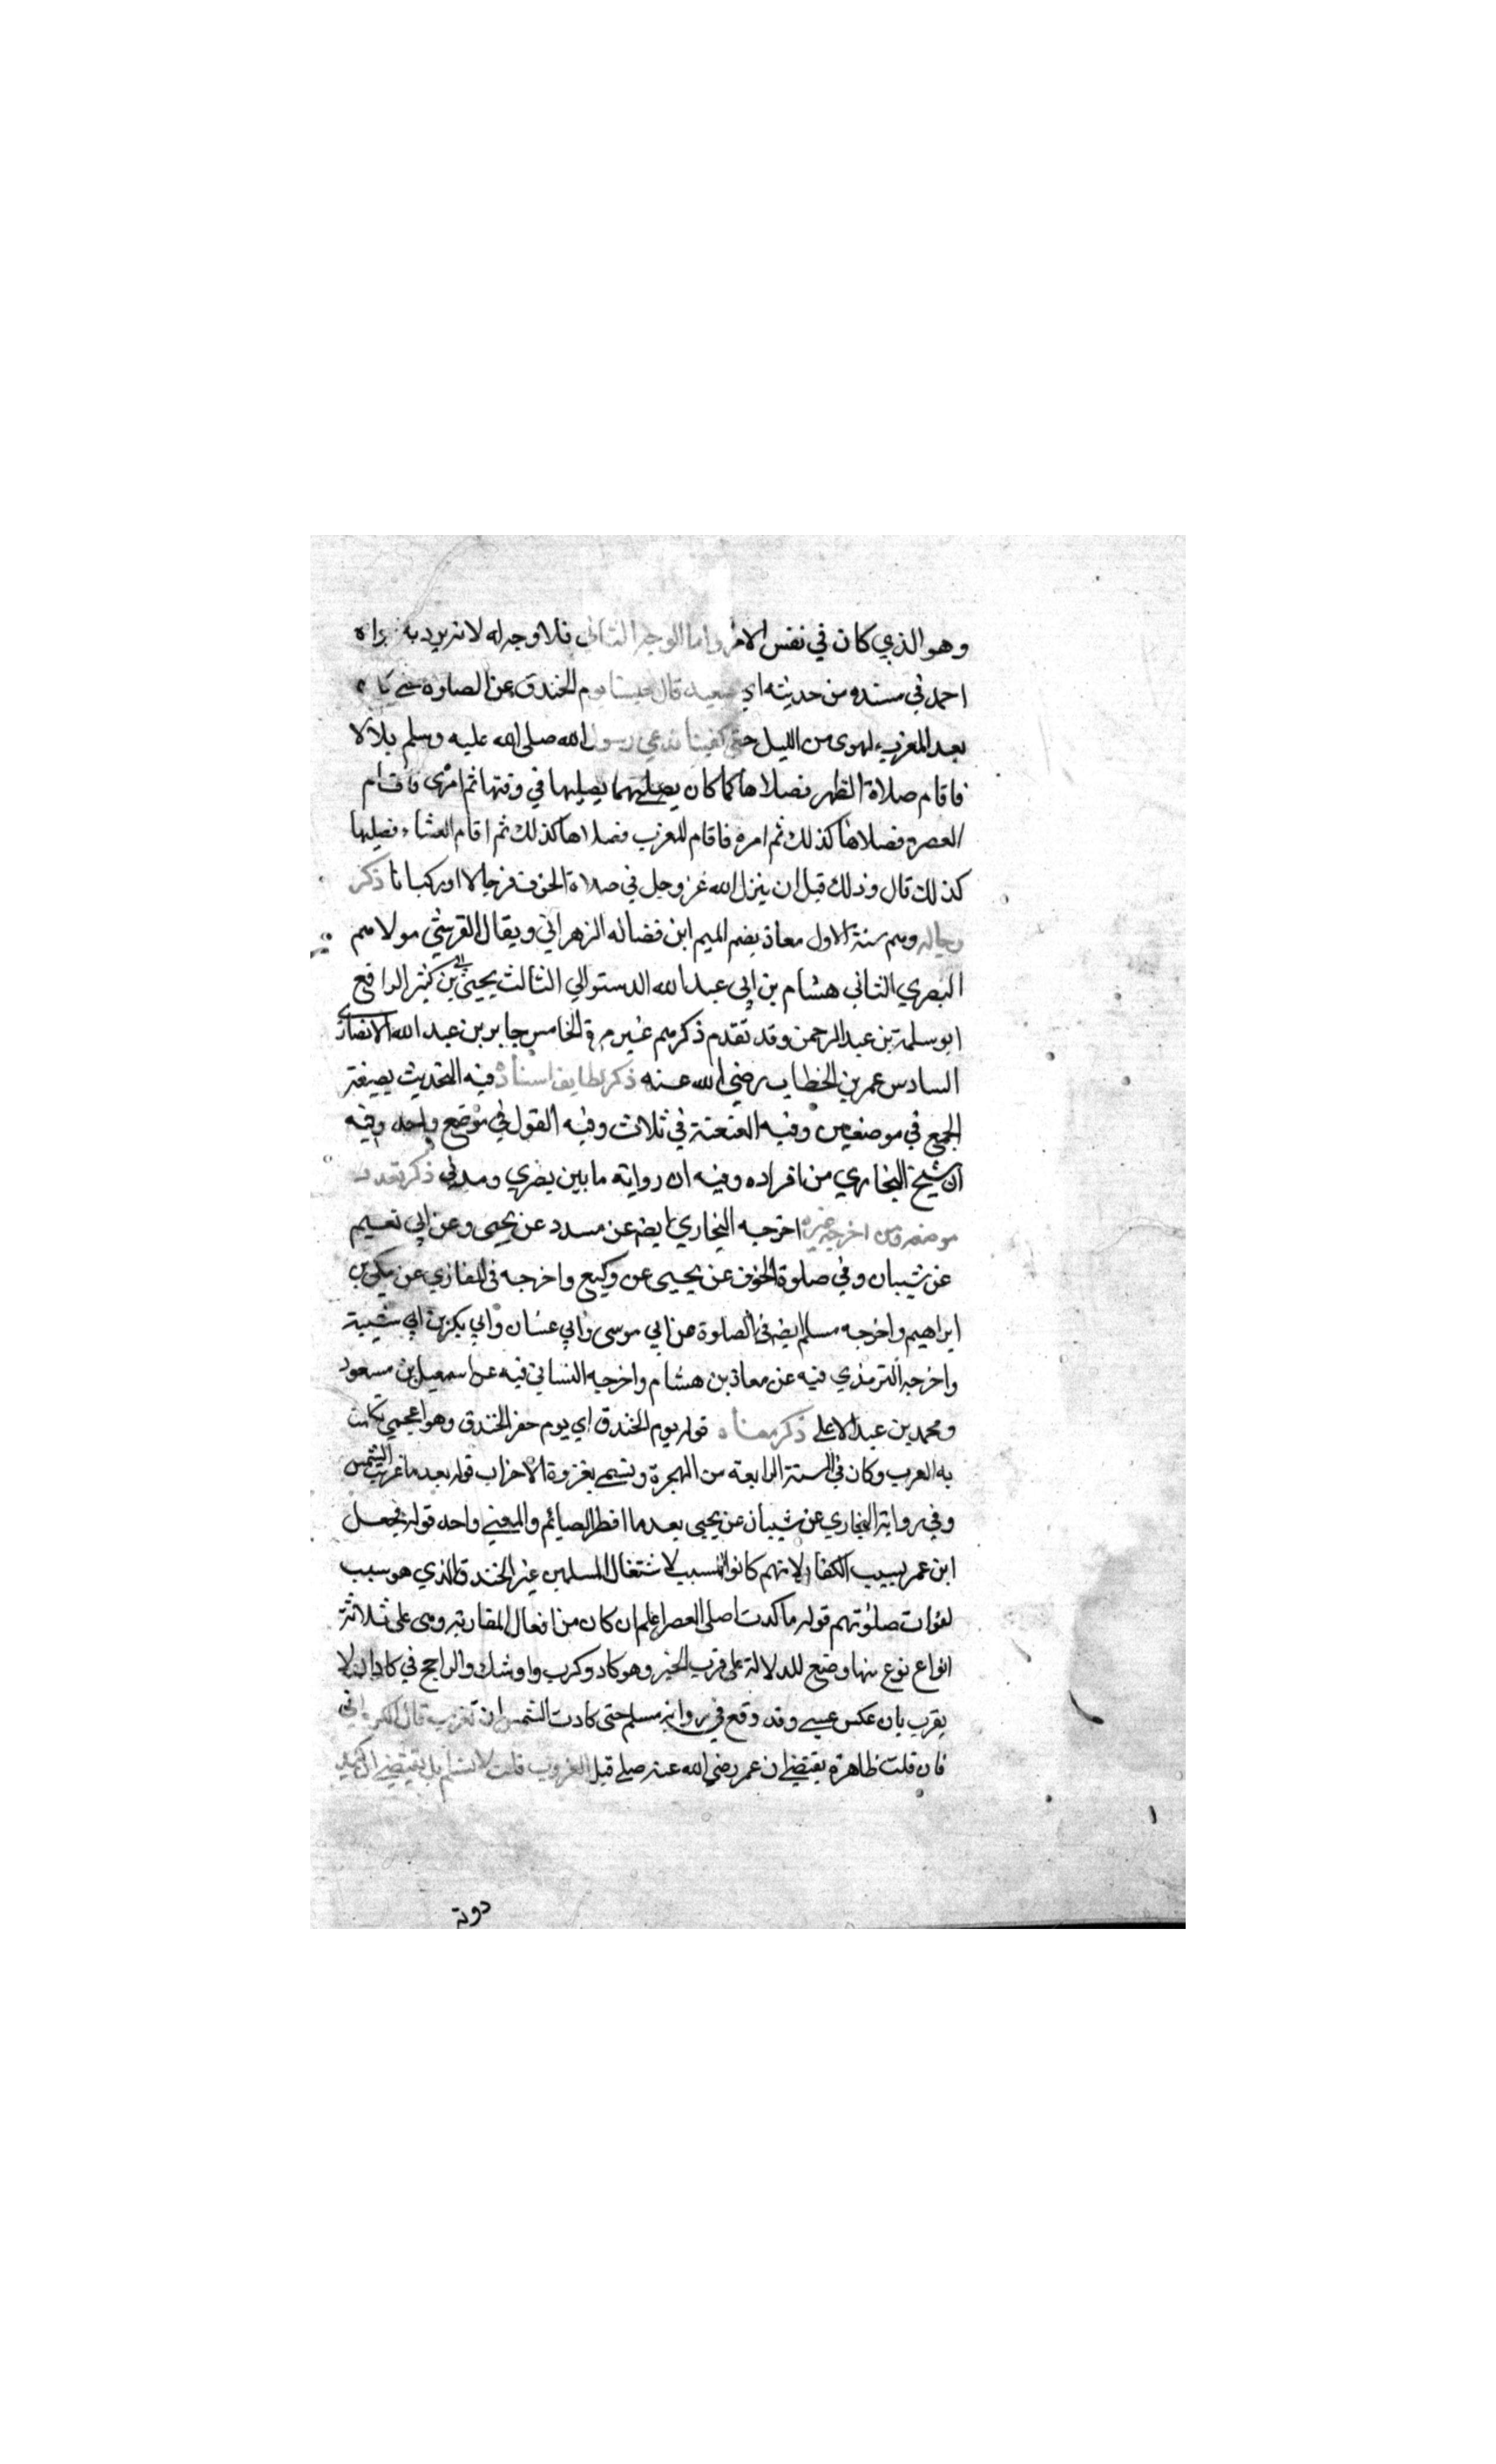 وهو الذي كان في نفس الامر واما الوجه الثاني فلا وجه له لا نريد به رواه
احمد في مسنده من حديثه ابي سعيد قال حبسنا يوم الخندق عن الصلوة حتى كان
بعد المغرب لهوى من الليل حتى كفينا فدعي رسول الله صلى الله عليه وسلم بلالا
فاقام صلاة الظهر فصلاها كما كان يصليها في وقتها ثم امره فاقام
العصر فصلاها كذلك ثم امره فاقام المغرب فصلاها كذلك ثم اقام العشاء فصليها
كذلك قال وذلك قبل ان ينزل الله عز وجل في صلاة الخوف فرجالا او ركبانا ذكر
رجاله وهم ستة الاول معاذ بضم الميم ابن فضالة الزهراني ويقال القرشي مولاهم
البصري الثاني هشام بن ابي عبد الله الدستوائي الثالث يحيى بن ابي كثير الرابع
ابو سلمة بن عبد الرحمن وقد تقدم ذكرهم غير مرة الخامس جابر بن عبد الله الانصاري
السادس عمر بن الخطاب رضي الله عنه ذكر لطايف اسناده فيه التحديث بصيغة
الجمع في موضعين وفيه العنعنة في ثلاث وفيه القول في موضع واحد وفيه
ان شيخ البخاري من افراده وفيه ان رواته ما بين بصري ومدني ذكر تعدد
موضعه ومن اخرجه غيره اخرجه البخاري ايضا عن مسدد عن يحيى وعن ابي نعيم
عن شيبان وفي صلوة الخوف عن يحيى عن وكيع واخرجه في المغازي عن مكي بن
ابراهيم واخرجه مسلم ايضا في الصلوة عن ابي موسى وابي غسان وابي بكر بن ابي شيبة
واخرجه الترمذي فيه عن معاذ بن هشام واخرجه النسائي فيه عن اسمعيل بن مسعود
ومحمد بن عبد الاعلى ذكر معناه قوله يوم الخندق اي يوم حفر الخندق وهو اعجمي تكلمت
به العرب وكان في السنة الرابعة من الهجرة وتسمى بغزوة الاحزاب قوله بعد ما غربت الشمس
وفي رواية البخاري عن شيبان عن يحيى بعد ما افطر الصائم والمعنى واحد قوله فجعل
ابن عمر يسب الكفار لانهم كانوا السبب لاشتغال المسلمين عن الخندق الذي هو سبب
لفوات صلوتهم قوله ما كدت اصلي العصر اعلم ان كان من افعال المقاربة وهي على ثلاثة
انواع نوع منها وضع للدلالة على قرب الخبر وهو كاد وكرب واوشك والراجح في كاد ان لا
يقرب بان عكس عسى وقد وقع في رواية مسلم حتى كادت الشمس ان تغرب قال الكرماني
فان قلت ظاهره يقتضي ان عمر رضي الله عنه صلى قبل الغروب قلت لا نسلم بل يقتضي ان